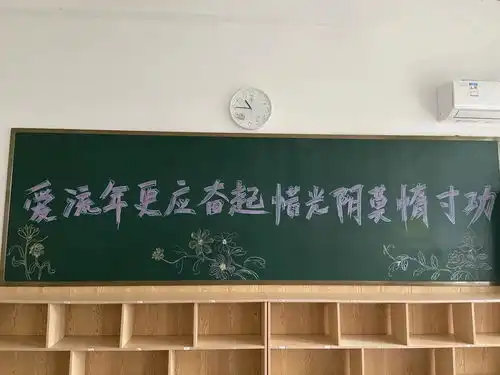 爱流年更应奋起惜光阴莫惰寸功